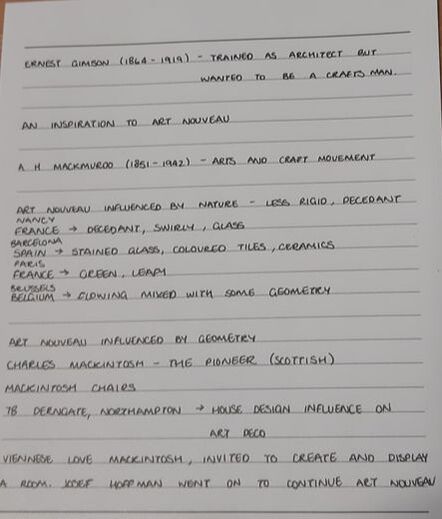 ERNEST GIMSON (1864 - 1919) - TRAINED AS ARCHITECT BUT
WANTED TO BE A CRAFTSMAN.
AN INSPIRATION TO ART NOUVEAU
A H MACKMURDO (1851 - 1942) - ARTS AND CRAFT MOVEMENT
ART NOUVEAU INFLUENCED BY NATURE - LESS RIGID, DECEDANT
NANCY
FRANCE → DECEDANT, SWIRLY, GLASS
BARCELONA
SPAIN → STAINED GLASS, COLOURED TILES, CERAMICS
PARIS
FRANCE → GREEN, LEAFY
BRUSSELS
BELGIUM → FLOWING MIXED WITH SOME GEOMETRY
ART NOUVEAU INFLUENCED BY GEOMETRY
CHARLES MACKINTOSH - THE PIONEER (SCOTTISH)
MACKINTOSH CHAIRS
78 DERNGATE, NORTHAMPTON → HOUSE DESIGN INFLUENCE ON
ART DECO
VIENNESE LOVE MACKINTOSH, INVITED TO CREATE AND DISPLAY
A ROOM. JOSEF HOFFMAN WENT ON TO CONTINUE ART NOUVEAU